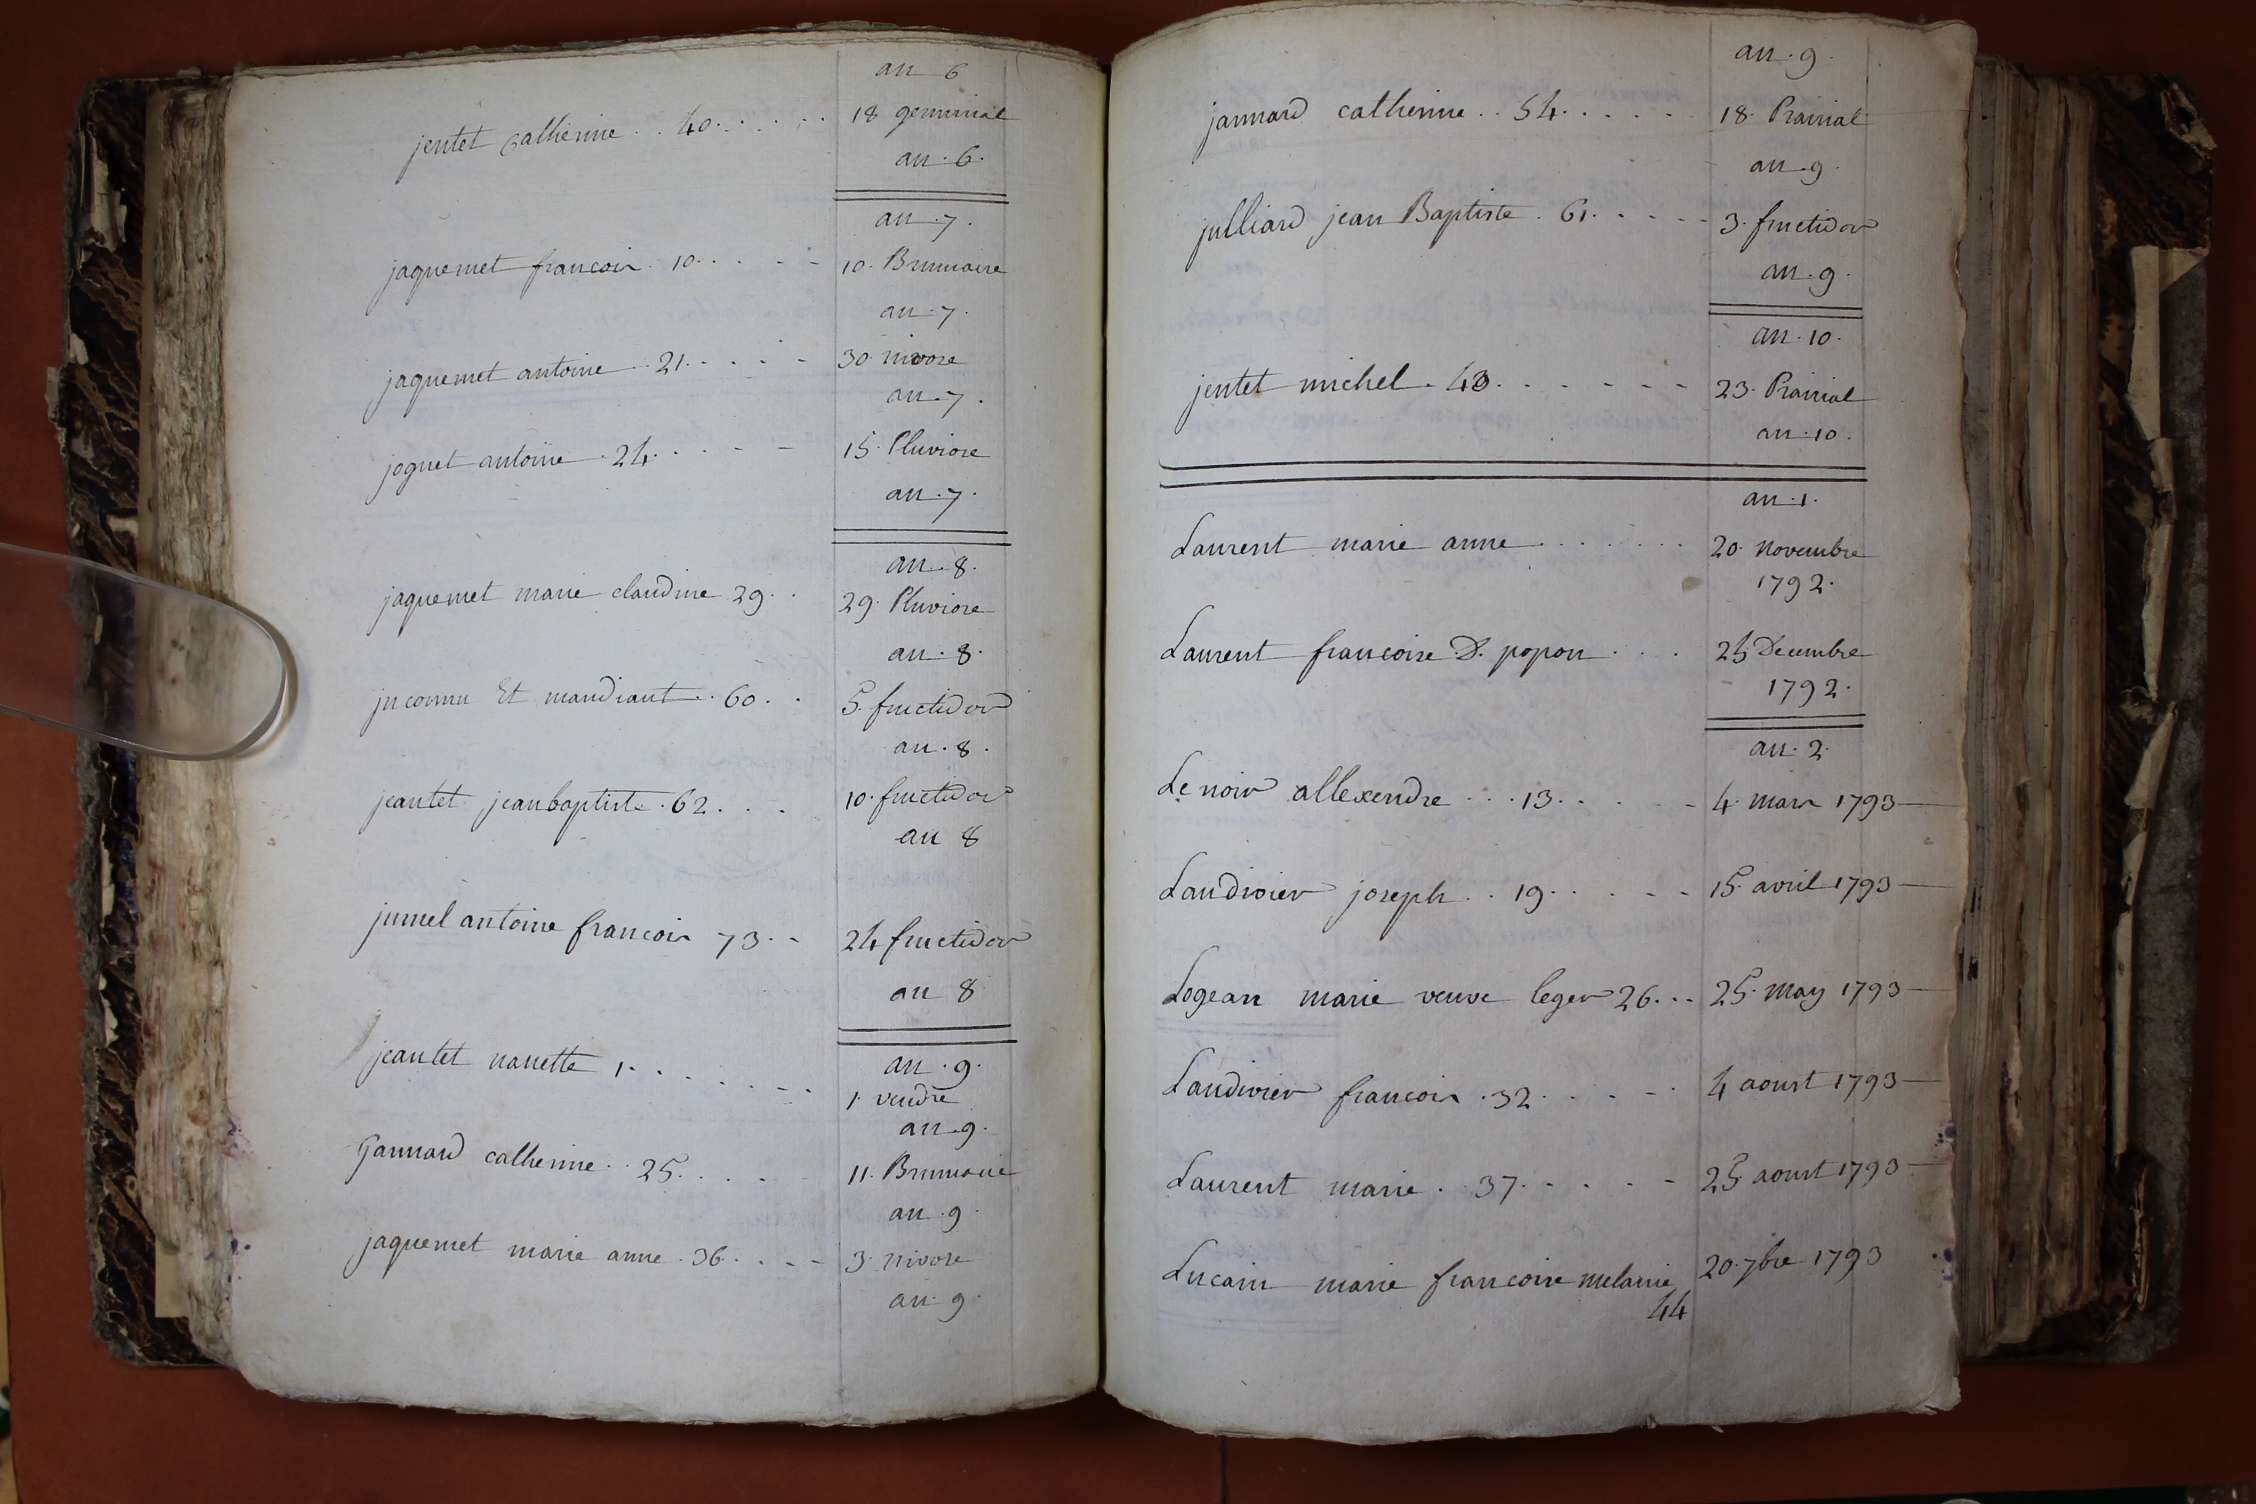 an 6
jentet catherine . . 40 . . . . . 18 germinal
an . 6 .
an . 7 .
jaquemet francois . 10 . . . . - 10 . Brumaire
an . 7 .
jaquemet antoine . . 21 . . . . - 30 nivose
an . 7 .
joguet antoine . 24 . . . - - 15 . Pluviose
an . 7 .
an . 8 .
jaquemet marie claudine 29 . . 29 . Pluviose
an . 8 .
jnconnu Et mandiant . . 60 . . 5 . fructidor
an . 8 .
jeantet jeanbaptiste . 62 . . . 10 . fructidor
an 8
jumel antoine francois 73 . - 24 fructidor
an 8
an . 9 .
jeantet nanette 1 . . . . . . . 1 . vendre
an . 9 .
Gannard catherine . . 25 . . . . . 11 . Brumaire
an . 9
jaquemet marie anne . 36 . . . - - 3 . nivose
an . 9
an . 9 .
jannard catherine . . 54 . . . . . . 18 . Prairial
an . 9 .
julliard jean Baptiste . 61 . . - - - 3 . fructidor
an . 9 .
an . 10 .
jentet michel . 43 . . - - - - - 23 . Prairial
an . 10 .
an . 1 .
Laurent marie anne . . . . . . . 20 . novembre
1792 .
Laurent francoise D. popon . . . 25 Decembre
1792 .
an . 2 .
Le noir allexendre . . . 13 . . . . . - 4 . mars 1793
Landivier joseph . . 19 . . . . - - 15 . avril 1793
Logean marie veuve leger 26 . . - 25 . may 1793
Landivier francois . 32 . . . . - . 4 aoust 1793
Laurent marie . . 37 . - . . . - 25 aoust 1793
Lucain marie francoise melanie 20 . 7bre 1793
44